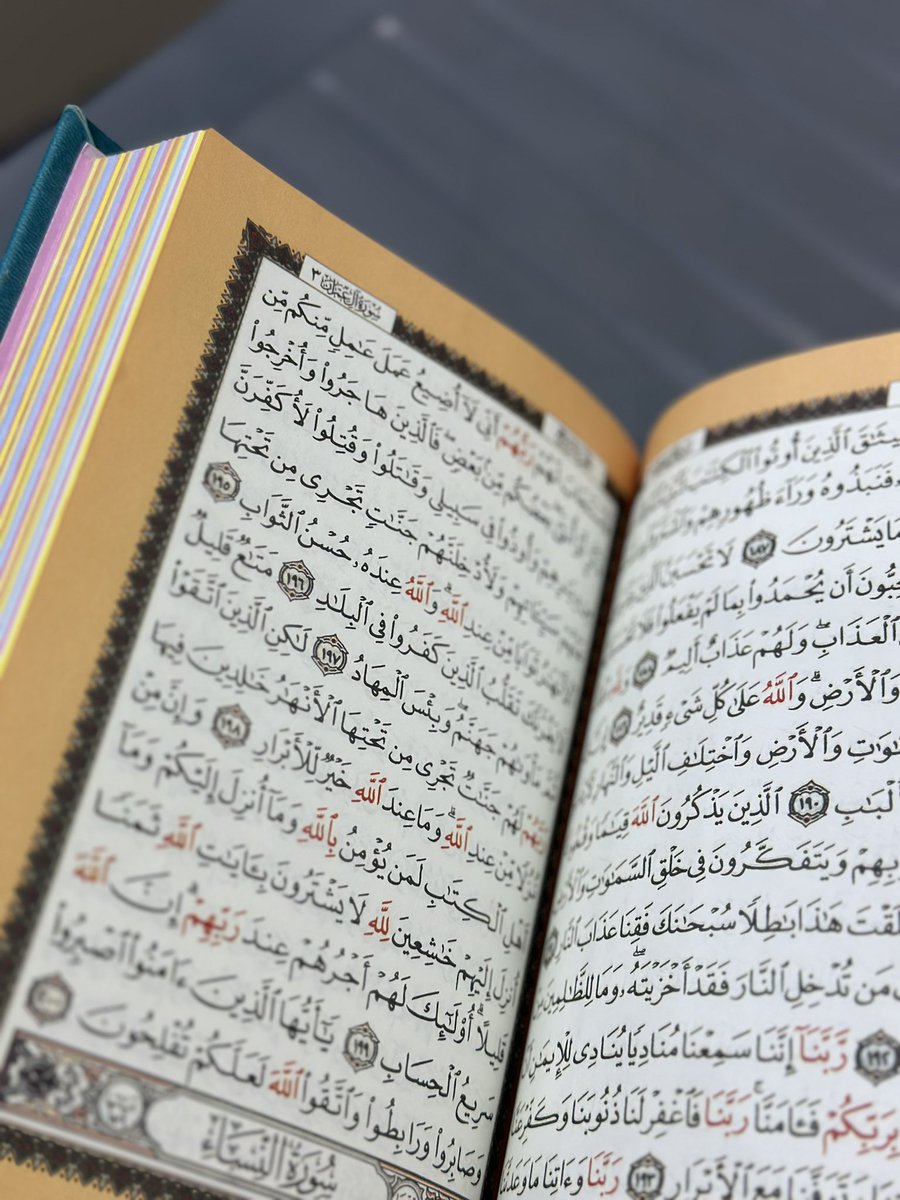 ٱلَّذِينَ أُوتُوا۟ ٱلْكِتَٰبَ
فَنَبَذُوهُ وَرَآءَ ظُهُورِهِمْ
مَا يَشْتَرُونَ ١٨٧ لَا تَحْسَبَنَّ ٱلَّذِينَ
أَن يُحْمَدُوا۟ بِمَا لَمْ يَفْعَلُوا۟ فَلَا
ٱلْعَذَابِ ۖ وَلَهُمْ عَذَابٌ أَلِيمٌ ١٨٨
وَٱلْأَرْضِ ۗ وَٱللَّهُ عَلَىٰ كُلِّ شَىْءٍ قَدِيرٌ ١٨٩
وَٱلْأَرْضِ وَٱخْتِلَٰفِ ٱلَّيْلِ وَٱلنَّهَارِ
١٩٠ ٱلَّذِينَ يَذْكُرُونَ ٱللَّهَ قِيَٰمًا وَقُعُودًا
وَيَتَفَكَّرُونَ فِى خَلْقِ ٱلسَّمَٰوَٰتِ وَٱلْأَرْضِ
هَٰذَا بَٰطِلًا سُبْحَٰنَكَ فَقِنَا عَذَابَ ٱلنَّارِ
مَن تُدْخِلِ ٱلنَّارَ فَقَدْ أَخْزَيْتَهُۥ ۖ وَمَا لِلظَّٰلِمِينَ مِنْ
١٩٢ رَّبَّنَآ إِنَّنَا سَمِعْنَا مُنَادِيًا يُنَادِى لِلْإِيمَٰنِ
بِرَبِّكُمْ فَـَٔامَنَّا ۚ رَبَّنَا فَٱغْفِرْ لَنَا ذُنُوبَنَا وَكَفِّرْ عَنَّا
مَعَ ٱلْأَبْرَارِ ١٩٣ رَبَّنَا وَءَاتِنَا مَا وَعَدتَّنَا
سُورَةُ آلِ عِمْرَان ٣
لَهُمْ رَبُّهُمْ أَنِّى لَآ أُضِيعُ عَمَلَ عَٰمِلٍ مِّنكُم مِّن
بَعْضُكُم مِّنۢ بَعْضٍ ۖ فَٱلَّذِينَ هَاجَرُوا۟ وَأُخْرِجُوا۟
وَأُوذُوا۟ فِى سَبِيلِى وَقَٰتَلُوا۟ وَقُتِلُوا۟ لَأُكَفِّرَنَّ
سَيِّـَٔاتِهِمْ وَلَأُدْخِلَنَّهُمْ جَنَّٰتٍ تَجْرِى مِن تَحْتِهَا
ٱلْأَنْهَٰرُ ثَوَابًا مِّنْ عِندِ ٱللَّهِ ۗ وَٱللَّهُ عِندَهُۥ حُسْنُ ٱلثَّوَابِ ١٩٥
لَا يَغُرَّنَّكَ تَقَلُّبُ ٱلَّذِينَ كَفَرُوا۟ فِى ٱلْبِلَٰدِ ١٩٦ مَتَٰعٌ قَلِيلٌ
ثُمَّ مَأْوَىٰهُمْ جَهَنَّمُ ۚ وَبِئْسَ ٱلْمِهَادُ ١٩٧ لَٰكِنِ ٱلَّذِينَ ٱتَّقَوْا۟
رَبَّهُمْ لَهُمْ جَنَّٰتٌ تَجْرِى مِن تَحْتِهَا ٱلْأَنْهَٰرُ خَٰلِدِينَ فِيهَا
نُزُلًا مِّنْ عِندِ ٱللَّهِ ۗ وَمَا عِندَ ٱللَّهِ خَيْرٌ لِّلْأَبْرَارِ ١٩٨ وَإِنَّ مِنْ
أَهْلِ ٱلْكِتَٰبِ لَمَن يُؤْمِنُ بِٱللَّهِ وَمَآ أُنزِلَ إِلَيْكُمْ وَمَآ
أُنزِلَ إِلَيْهِمْ خَٰشِعِينَ لِلَّهِ لَا يَشْتَرُونَ بِـَٔايَٰتِ ٱللَّهِ ثَمَنًا
قَلِيلًا ۗ أُو۟لَٰٓئِكَ لَهُمْ أَجْرُهُمْ عِندَ رَبِّهِمْ ۗ إِنَّ ٱللَّهَ
سَرِيعُ ٱلْحِسَابِ ١٩٩ يَٰٓأَيُّهَا ٱلَّذِينَ ءَامَنُوا۟ ٱصْبِرُوا۟
وَصَابِرُوا۟ وَرَابِطُوا۟ وَٱتَّقُوا۟ ٱللَّهَ لَعَلَّكُمْ تُفْلِحُونَ ٢٠٠
سُورَةُ النِّسَاءِ